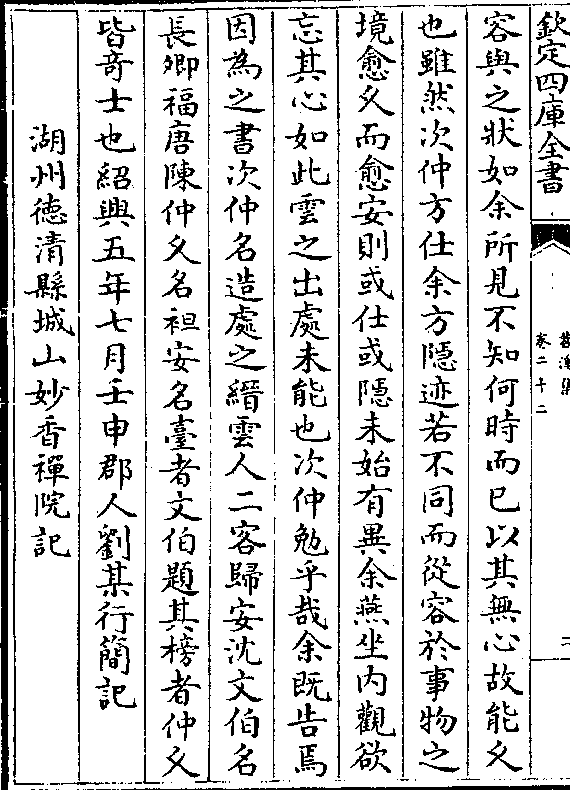 欽定四庫全書
苕溪集
卷二十二
容與之狀如余所見不知何時而已以其無心故能久
也雖然次仲方仕余方隱迹若不同而從容於事物之
境愈久而愈安則或仕或隱未始有異余燕坐内觀欲
忘其心如此雲之出處未能也次仲勉乎哉余既告焉
因為之書次仲名造處之縉雲人二客歸安沈文伯名
長卿福唐陳仲久名袒安名臺者文伯題其榜者仲久
皆竒士也紹興五年七月壬申郡人劉某行簡記
湖州德清縣城山妙香禪院記